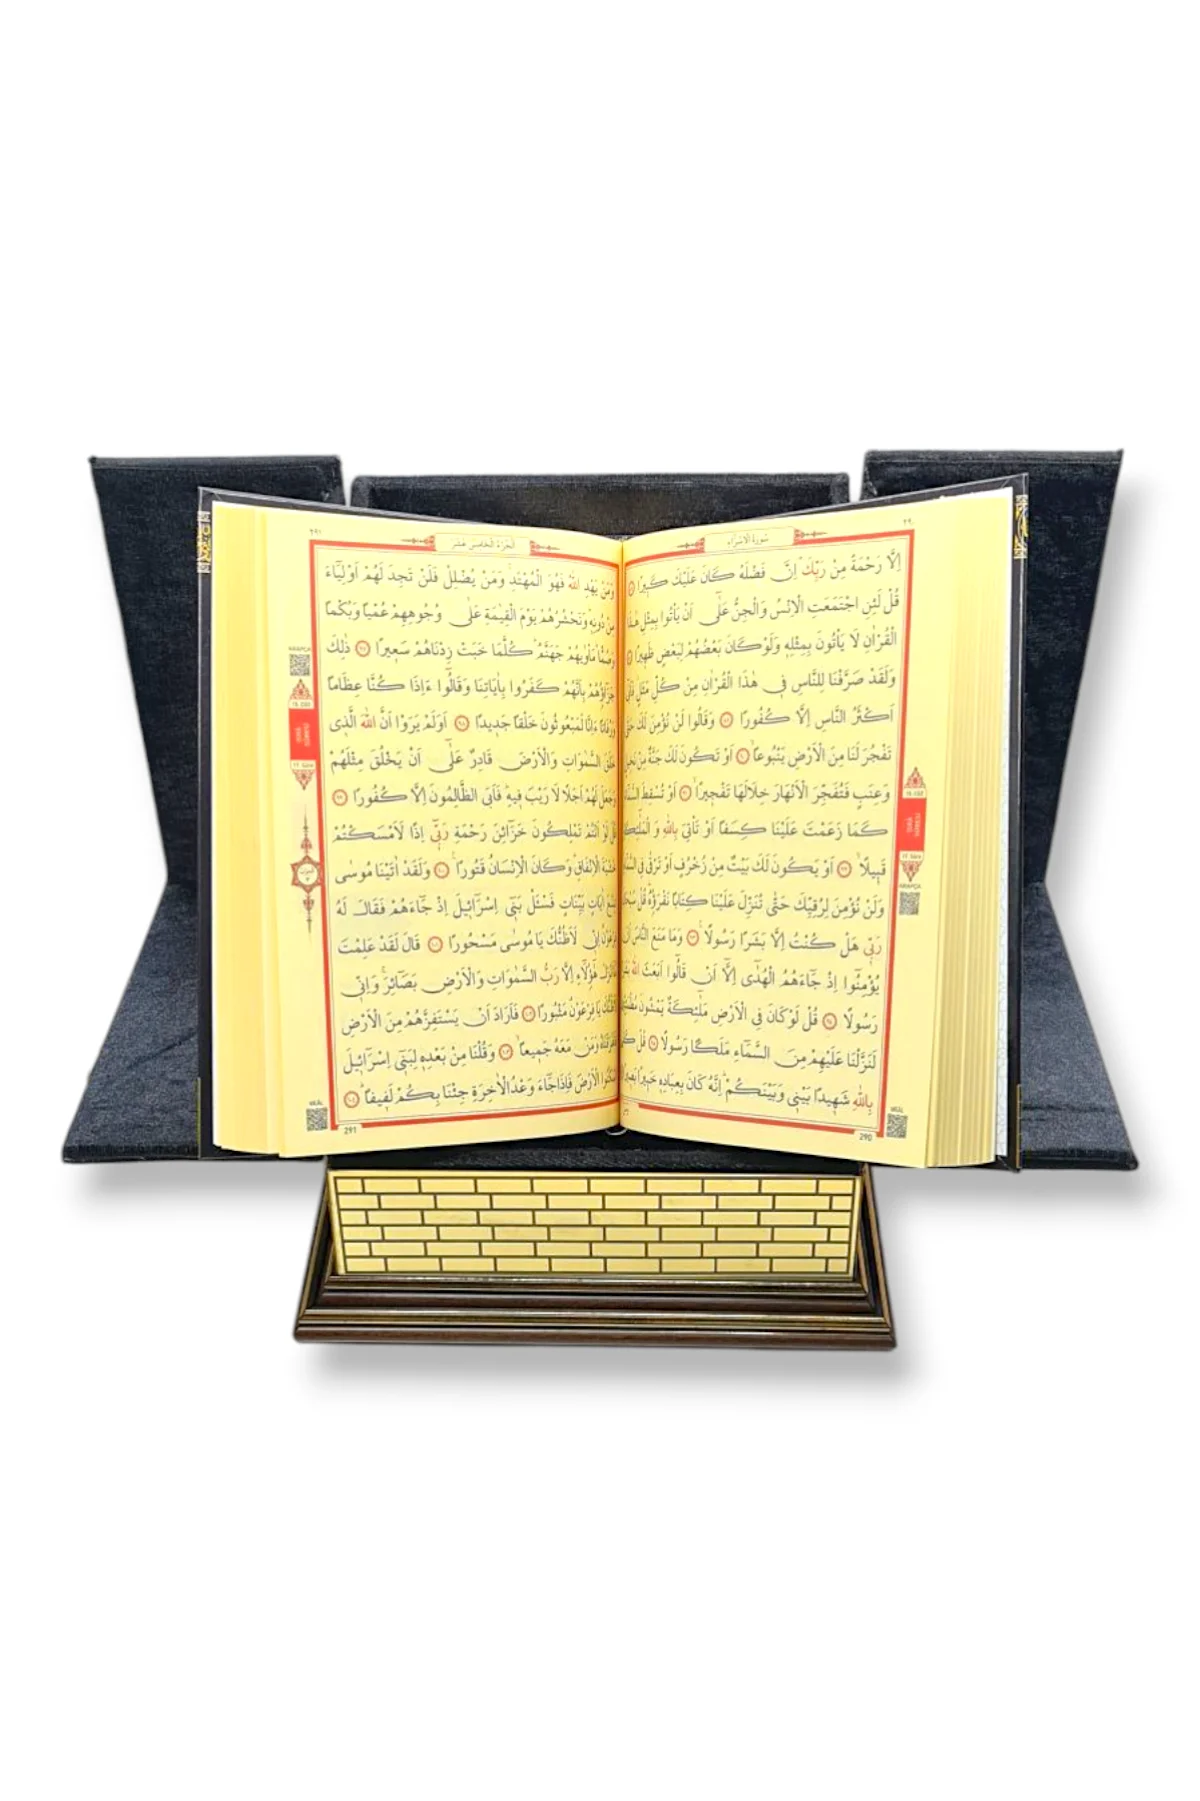 ٢٩٠
سُورَةُ الْاِسْرَاءِ
اِلَّا رَحْمَةً مِنْ رَبِّكَ اِنَّ فَضْلَهُ كَانَ عَلَيْكَ كَبِيرًا
قُلْ لَئِنِ اجْتَمَعَتِ الْاِنْسُ وَالْجِنُّ عَلٰٓى اَنْ يَأْتُوا بِمِثْلِ هٰذَا
الْقُرْاٰنِ لَا يَأْتُونَ بِمِثْلِهِ وَلَوْ كَانَ بَعْضُهُمْ لِبَعْضٍ ظَهِيرًا
وَلَقَدْ صَرَّفْنَا لِلنَّاسِ فِي هٰذَا الْقُرْاٰنِ مِنْ كُلِّ مَثَلٍ فَاَبٰٓى
اَكْثَرُ النَّاسِ اِلَّا كُفُورًا ٨٩ وَقَالُوا لَنْ نُؤْمِنَ لَكَ حَتّٰى
تَفْجُرَ لَنَا مِنَ الْاَرْضِ يَنْبُوعًا ٩٠ اَوْ تَكُونَ لَكَ جَنَّةٌ مِنْ نَخِيلٍ
وَعِنَبٍ فَتُفَجِّرَ الْاَنْهَارَ خِلَالَهَا تَفْجِيرًا ٩١ اَوْ تُسْقِطَ السَّمَٓاءَ
كَمَا زَعَمْتَ عَلَيْنَا كِسَفًا اَوْ تَأْتِيَ بِاللّٰهِ وَالْمَلٰٓئِكَةِ
قَبِيلًا ٩٢ اَوْ يَكُونَ لَكَ بَيْتٌ مِنْ زُخْرُفٍ اَوْ تَرْقٰى فِي السَّمَٓاءِ
وَلَنْ نُؤْمِنَ لِرُقِيِّكَ حَتّٰى تُنَزِّلَ عَلَيْنَا كِتَابًا نَقْرَؤُ۬هُ قُلْ سُبْحَانَ
رَبِّي هَلْ كُنْتُ اِلَّا بَشَرًا رَسُولًا ٩٣ وَمَا مَنَعَ النَّاسَ اَنْ
يُؤْمِنُٓوا اِذْ جَٓاءَهُمُ الْهُدٰٓى اِلَّٓا اَنْ قَالُٓوا اَبَعَثَ اللّٰهُ بَشَرًا
رَسُولًا ٩٤ قُلْ لَوْ كَانَ فِي الْاَرْضِ مَلٰٓئِكَةٌ يَمْشُونَ مُطْمَئِنِّينَ
لَنَزَّلْنَا عَلَيْهِمْ مِنَ السَّمَٓاءِ مَلَكًا رَسُولًا ٩٥ قُلْ كَفٰى
بِاللّٰهِ شَهِيدًا بَيْنِي وَبَيْنَكُمْ اِنَّهُ كَانَ بِعِبَادِهِ خَبِيرًا بَصِيرًا
15. CÜZ
ARAPÇA
MEÂL
290
٢٩١
اَلْجُزْءُ الْخَامِسَ عَشَرَ
وَمَنْ يَهْدِ اللّٰهُ فَهُوَ الْمُهْتَدِ وَمَنْ يُضْلِلْ فَلَنْ تَجِدَ لَهُمْ اَوْلِيَٓاءَ
مِنْ دُونِهِ وَنَحْشُرُهُمْ يَوْمَ الْقِيٰمَةِ عَلٰى وُجُوهِهِمْ عُمْيًا وَبُكْمًا
وَصُمًّا مَأْوٰيهُمْ جَهَنَّمُ كُلَّمَا خَبَتْ زِدْنَاهُمْ سَعِيرًا ٩٧ ذٰلِكَ
جَزَٓاؤُ۬هُمْ بِاَنَّهُمْ كَفَرُوا بِاٰيَاتِنَا وَقَالُٓوا ءَاِذَا كُنَّا عِظَامًا
وَرُفَاتًا ءَاِنَّا لَمَبْعُوثُونَ خَلْقًا جَدِيدًا ٩٨ اَوَلَمْ يَرَوْا اَنَّ اللّٰهَ الَّذِي
خَلَقَ السَّمٰوَاتِ وَالْاَرْضَ قَادِرٌ عَلٰٓى اَنْ يَخْلُقَ مِثْلَهُمْ
وَجَعَلَ لَهُمْ اَجَلًا لَا رَيْبَ فِيهِ فَاَبَى الظَّالِمُونَ اِلَّا كُفُورًا ٩٩
قُلْ لَوْ اَنْتُمْ تَمْلِكُونَ خَزَٓائِنَ رَحْمَةِ رَبِّٓي اِذًا لَاَمْسَكْتُمْ
خَشْيَةَ الْاِنْفَاقِ وَكَانَ الْاِنْسَانُ قَتُورًا ١٠٠ وَلَقَدْ اٰتَيْنَا مُوسٰى
تِسْعَ اٰيَاتٍ بَيِّنَاتٍ فَسْـَٔلْ بَنِٓي اِسْرَٓائِيلَ اِذْ جَٓاءَهُمْ فَقَالَ لَهُ
فِرْعَوْنُ اِنِّي لَاَظُنُّكَ يَا مُوسٰى مَسْحُورًا ١٠١ قَالَ لَقَدْ عَلِمْتَ
مَٓا اَنْزَلَ هٰٓؤُ۬لَٓاءِ اِلَّا رَبُّ السَّمٰوَاتِ وَالْاَرْضِ بَصَٓائِرَ وَاِنِّي
لَاَظُنُّكَ يَا فِرْعَوْنُ مَثْبُورًا ١٠٢ فَاَرَادَ اَنْ يَسْتَفِزَّهُمْ مِنَ الْاَرْضِ
فَاَغْرَقْنَاهُ وَمَنْ مَعَهُ جَمِيعًا ١٠٣ وَقُلْنَا مِنْ بَعْدِهِ لِبَنِٓي اِسْرَٓائِيلَ
اسْكُنُوا الْاَرْضَ فَاِذَا جَٓاءَ وَعْدُ الْاٰخِرَةِ جِئْنَا بِكُمْ لَفِيفًا ١٠٤
ARAPÇA
15. CÜZ
MEÂL
291